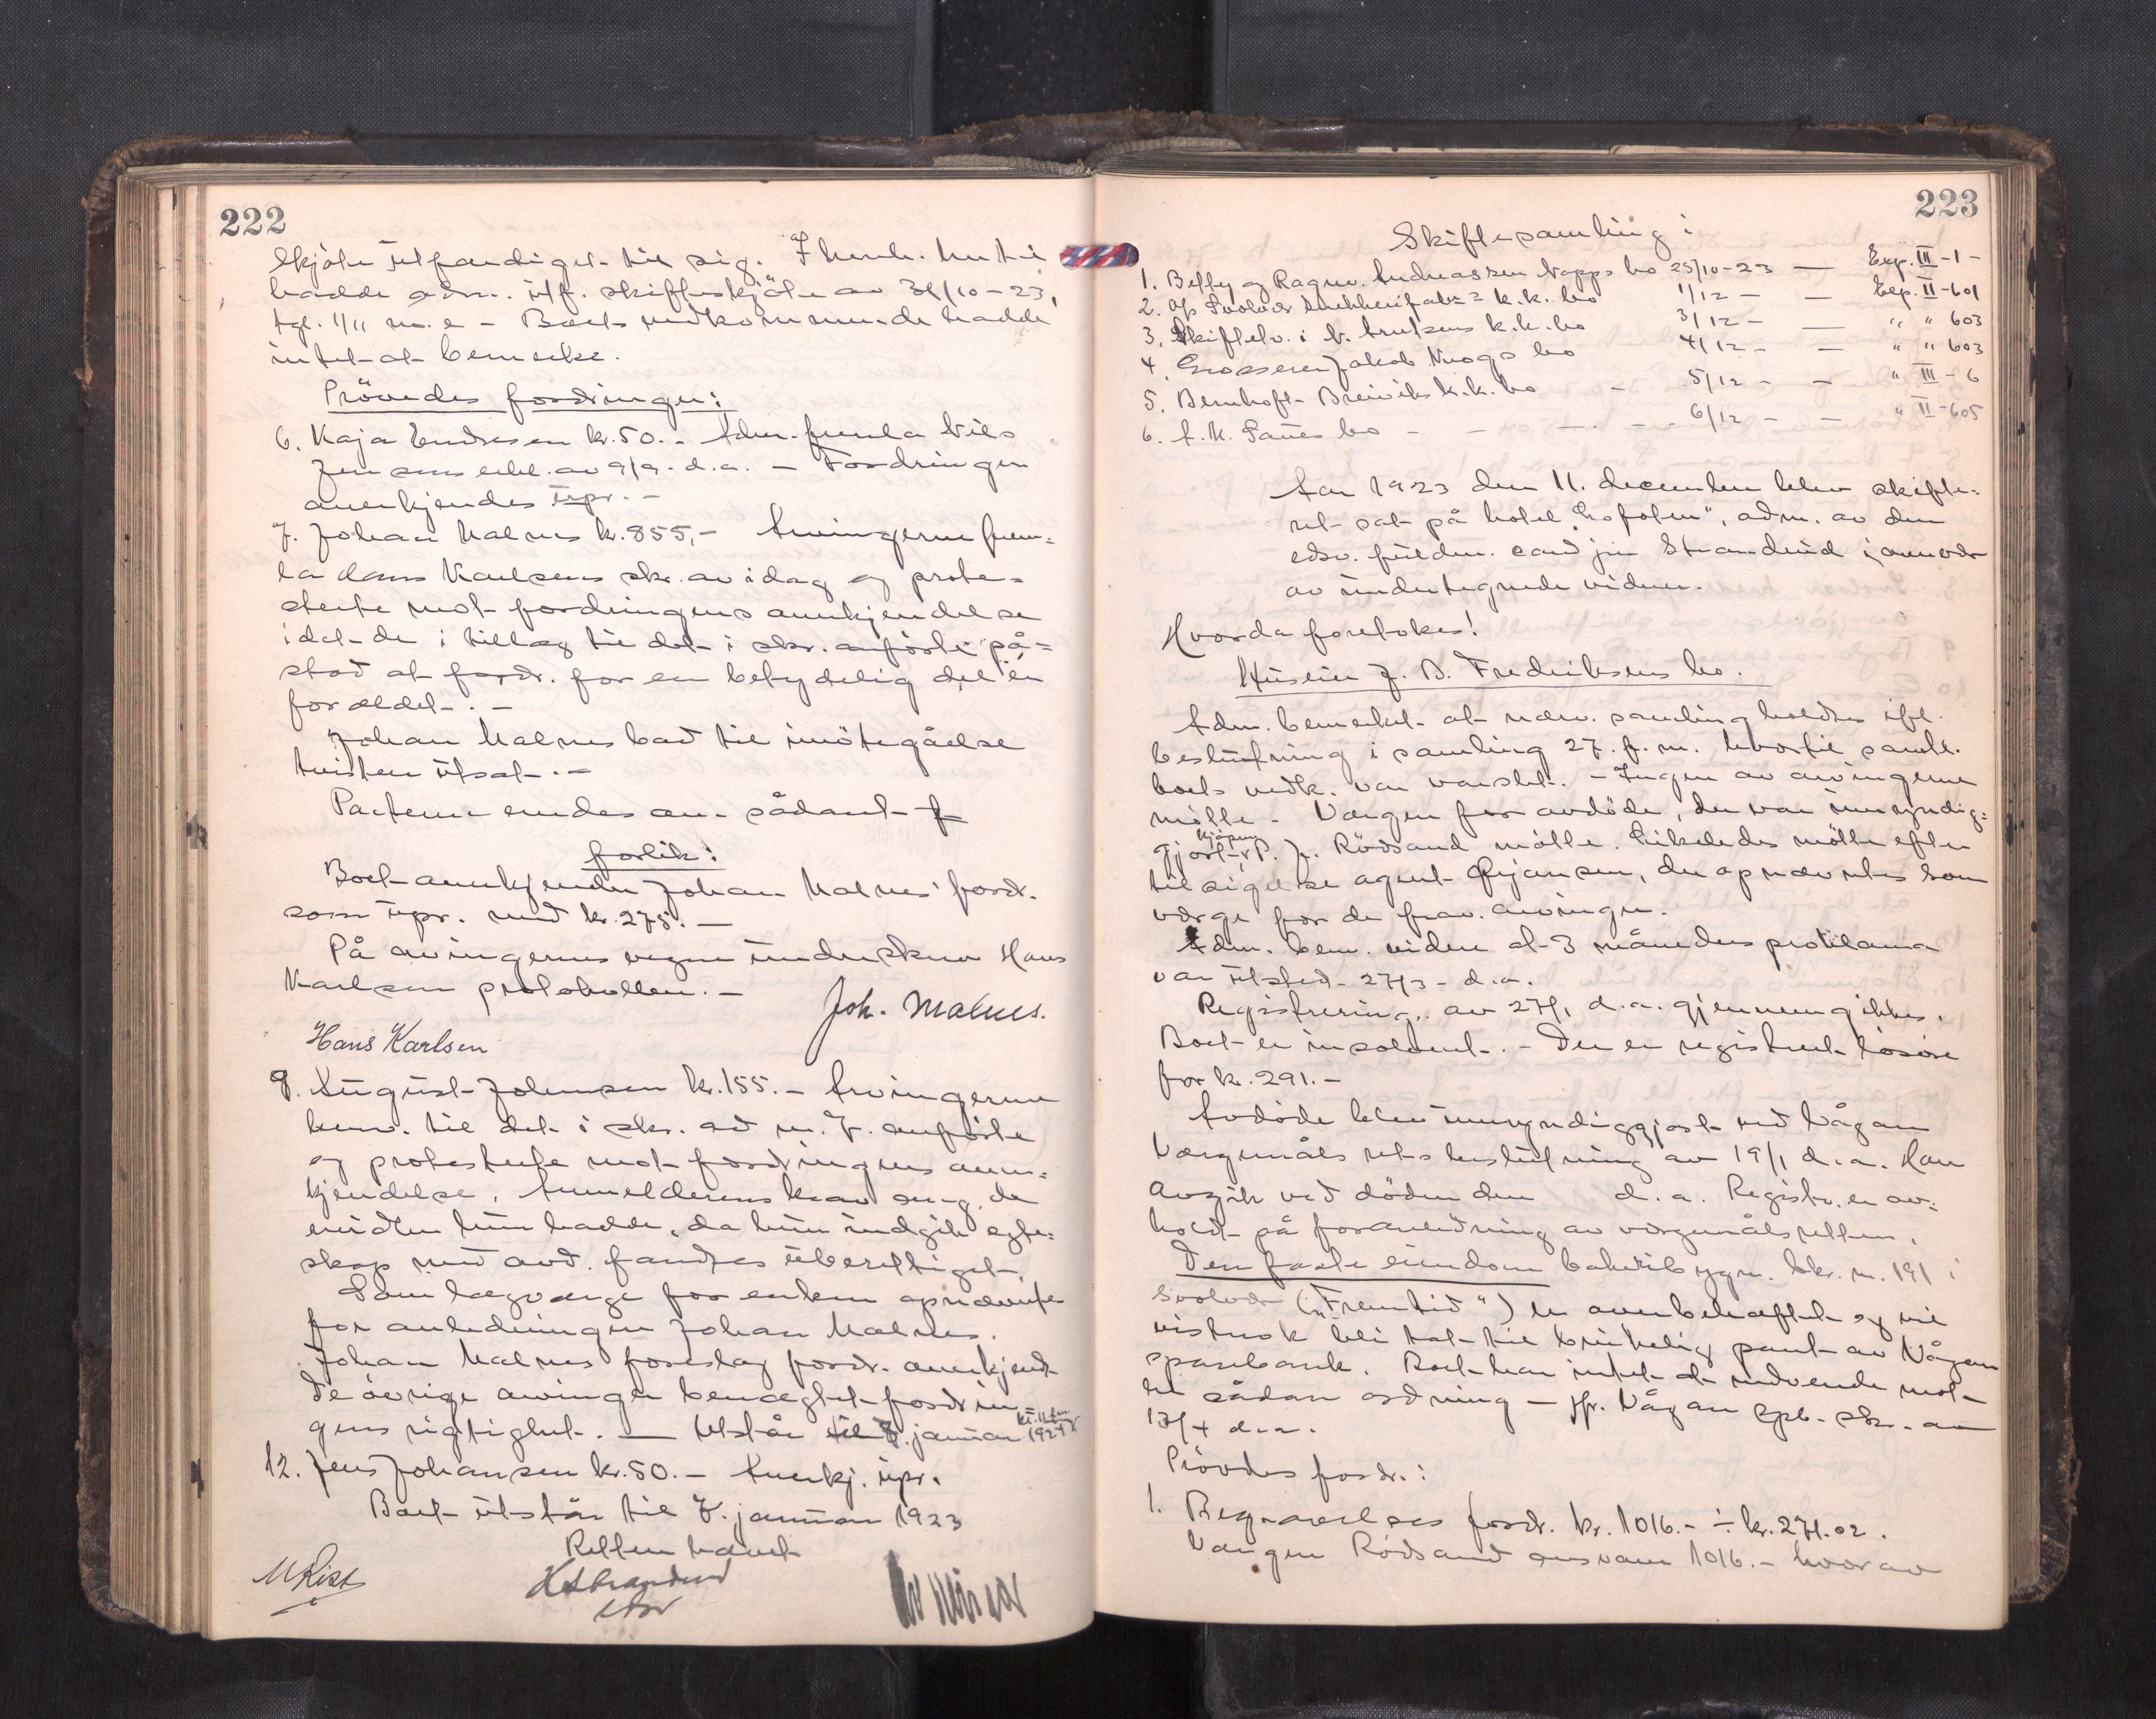 222
skjöte utfærdiget til sig. I henh. hertil
hadde adm. utf. skifteskjöte av 31/10-23,
tgl. 1/11 n. e. - Boets vedkommende hadde
intet at bemerke.
Prövedes fordringer:
6. Kaja Endresen kr. 50.- Adm. fremla Nils
Jensens erkl. av 9/9 d.a. - Fordringen
anerkjendes upr. -
7. Johan Malnes kr. 855,- Arvingerne frem-
la Hans Karlsens skr. av idag og prote-
sterte mot fordringens anerkjendelse
idet de i tillæg til det i skr. anförte på-
stod at fordr. for en betydelig del er
forældet. -
Johan Malnes bad til imötegåelse
tvisten utsat. -
Parterne enedes om sådant
forlik:
Boet anerkjender Johan Malnes' fordr.
som upr. med kr. 275. -
På arvingernes vegne underskrev Hans
Karlsen protokollen. -
Joh. Malnes.
Hans Karlsen
9. August Johnsen kr. 155. - Arvingerne
henv. til det i skr. ad nr. 7. anförte
og protesterte mot fordringens aner-
kjendelse. Anmelderens krav ang. de
midler hun hadde, da hun indgik egte-
skap med avd. fandtes uberettiget.
Som lagværge for enken opnævntes
for anledningen Johan Malnes.
Johan Malnes foreslog fordr. anerkjendt
De övrige arvinger benægtet fordrin-
gens rigtighet. - Utstår til 7. januar 1924 kl. 11 form.
12. Jens Johansen kr. 50. - Anerkj. upr.
Boet utstår til 7. januar 1923
Retten hævet
HStrandrud
223
Skiftesamling i
1. Betty og Ragnv. Andreassen Napps bo 25/10-23 — Exp. III-1-
2. A/S Svolvær k.k. bo 1/12 - — Exp. II-601
3. Skiftelv. i N. Arntsens k.k. bo 3/12 - — " " 603
4. Grosserer Jakob Kvogs bo 4/12 - — " " 603
5. Bernhoft Breiviks k.k. bo - 5/12 - - " III - 6
6. A. M. bo - - - - 6/12 - — " II-605
Aar 1923 den 11. december blev skifte-
ret sat på hotel "Lofoten", adm. av den
edsv. fuldm. cand jur Strandrud i nærvær
av undertegnede vidner.
Hvorda foretokes!
Huseier J. B. Fredriksens bo.
Adm. bemerket at nærv. samling holdes ifl.
beslutning i samling 27. f. m. hvortil samtl.
boets vedk. var varslet. - Ingen av arvingerne
mötte. Værgen for avdöde, der var umyndig-
gjort kjöpm. P. J. Rödsand mötte. Likeledes mötte efter
tilsigelse agent Ørjansen, der opnævntes som
værge for de frav. arvinger.
Adm. bem. videre at 3 måneders proklama
var utsted 27/3 - d.a.
Registrering av 27/1 d.a. gjennemgikkes.
Boet er insolvent. - Der er registrert lösöre
for kr. 291.-
Avdöde blev umyndiggjort ved Vågan
Vergemåls rets beslutning av 19/1 d.a. Han
avgik ved döden den d.a. Registr. er av-
holdt på foranledning av vergemålsretten.
Den faste eiendom bakeribygn. br. nr. 191 i
Svolvær ("Fremtid") er overbeheftet og vil
vistnok bli tat til brukelig pant av Vågan
sparebank. Boet har intet at indvende mot
en sådan ordning - jfr. Vågan spb. skr. av
13/4 d.a.
Prövedes fordr.:
1. Begravelses fordr. kr. 1016.- ÷ kr. 271.02.
Værgen Rödsand 1016.- hvorav